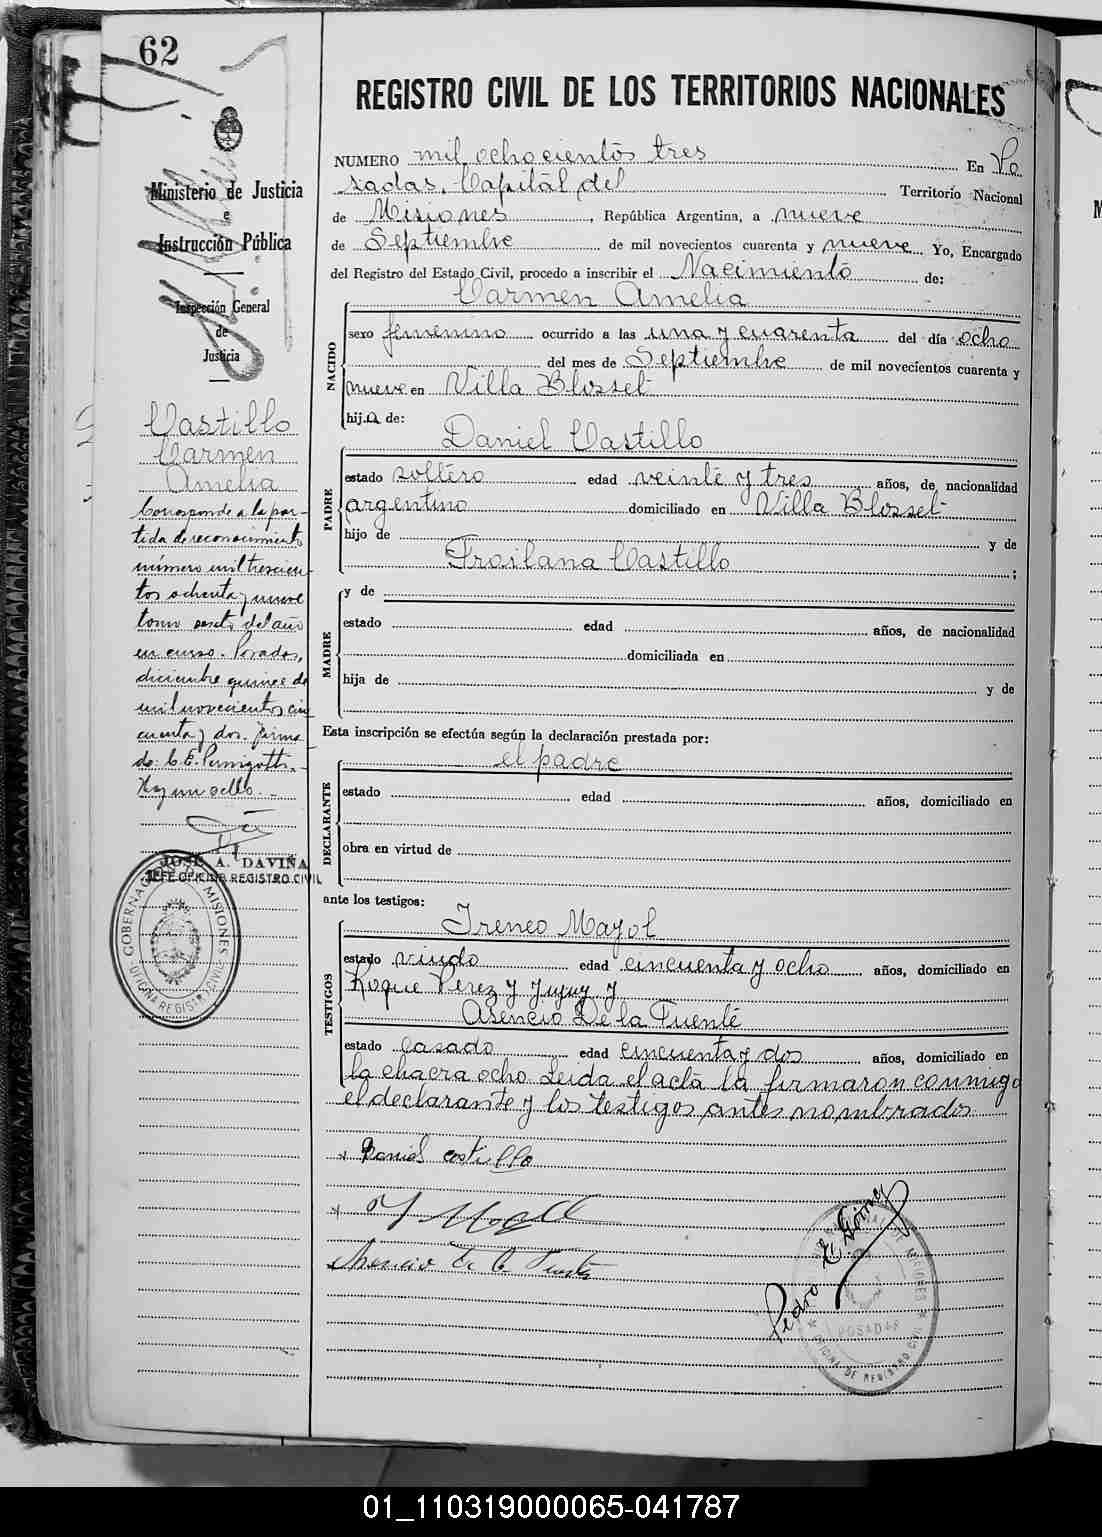 62
Ministerio de Justicia
e
Instrucción Pública
Inspección General
de
Justicia
Castillo
Carmen
Amelia
Corresponde a la par-
tida de reconocimiento
número mil trescien-
tos ochenta y nueve
tomo sexto del año
en curso. Posadas,
diciembre quince de
mil novecientos cin
cuenta y dos. firma
do: C. E. Pernigotti.
Hay un sello.
JOSE A. DAVIÑA
JEFE OFICINA REGISTRO CIVIL
GOBERNACION DE MISIONES
OFICINA REGISTRO CIVIL
REGISTRO CIVIL DE LOS TERRITORIOS NACIONALES
NUMERO mil ochocientos tres En Po
sadas, Capital del Territorio Nacional
de Misiones, República Argentina, a nueve
de Septiembre de mil novecientos cuarenta y nueve Yo, Encargado
del Registro del Estado Civil, procedo a inscribir el Nacimiento de:
Carmen Amelia
NACIDO
sexo femenino ocurrido a las una y cuarenta del día ocho
del mes de Septiembre de mil novecientos cuarenta y
nueve en Villa Blosset
hija de:
Daniel Castillo
PADRE
estado soltero edad veinte y tres años, de nacionalidad
argentino domiciliado en Villa Blosset
hijo de y de
Froilana Castillo ;
MADRE
y de
estado edad años, de nacionalidad
domiciliada en
hija de y de
Esta inscripción se efectúa según la declaración prestada por:
el padre
DECLARANTE
estado edad años, domiciliado en
obra en virtud de
ante los testigos:
Ireneo Mayol
TESTIGOS
estado viudo edad cincuenta y ocho años, domiciliado en
Roque Perez y Jujuy y
Asencio De la Fuente
estado casado edad cincuenta y dos años, domiciliado en
la chacra ocho. Leida el acta la firmaron conmigo
el declarante y los testigos antes nombrados
Daniel castillo
Asencio de la Fuente
Pedro E. Gómez
POSADAS
OFICINA DE REGISTRO CIVIL
01_110319000065-041787